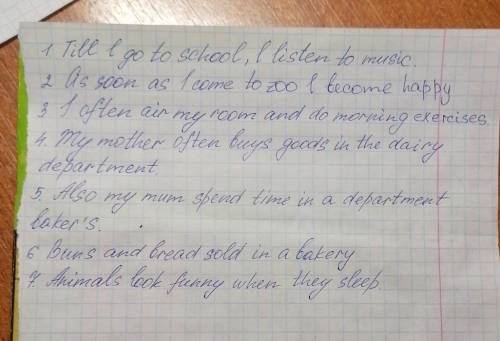 1 Till I go to school, I listen to music.
2 As soon as I come to zoo I become happy
3 I often air my room and do morning exercises.
4. My mother often buys goods in the dairy
department.
5. Also my mum spend time in a department
baker's.
6 Buns and bread sold in a bakery
7. Animals look funny when they sleep.